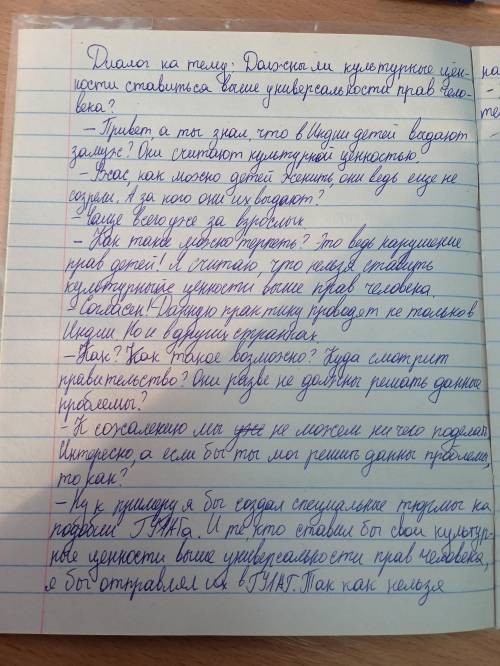 Диалог на тему: Должны ли культурные цен-
ности ставиться выше универсальности прав чело-
века?
- Привет, а ты знал, что в Индии детей выдают
замуж? Они считают культурной ценностью.
- Ужас, как можно детей женить, они ведь еще не
созрели. А за кого они их выдают?
- Чаще всего уже за взрослых.
- Как такое можно терпеть? Это ведь нарушение
прав детей! Я считаю, что нельзя ставить
культурные ценности выше прав человека.
- Согласен! Данную практику проводят не только в
Индии. Но и в других странах.
- Как? Как такое возможно? Куда смотрит
правительство? Они разве не должны решать данные
проблемы?
- К сожалению мы не можем ничего поделать.
Интересно, а если бы ты мог решить данны проблемы,
то как?
- Ну к примеру я бы создал специальные тюрьмы на
подобии ГУЛАГа. И те, кто ставил бы свои культур-
ные ценности выше универсальности прав человека,
я бы отправлял их в ГУЛАГ. Так как нельзя
на
-
те